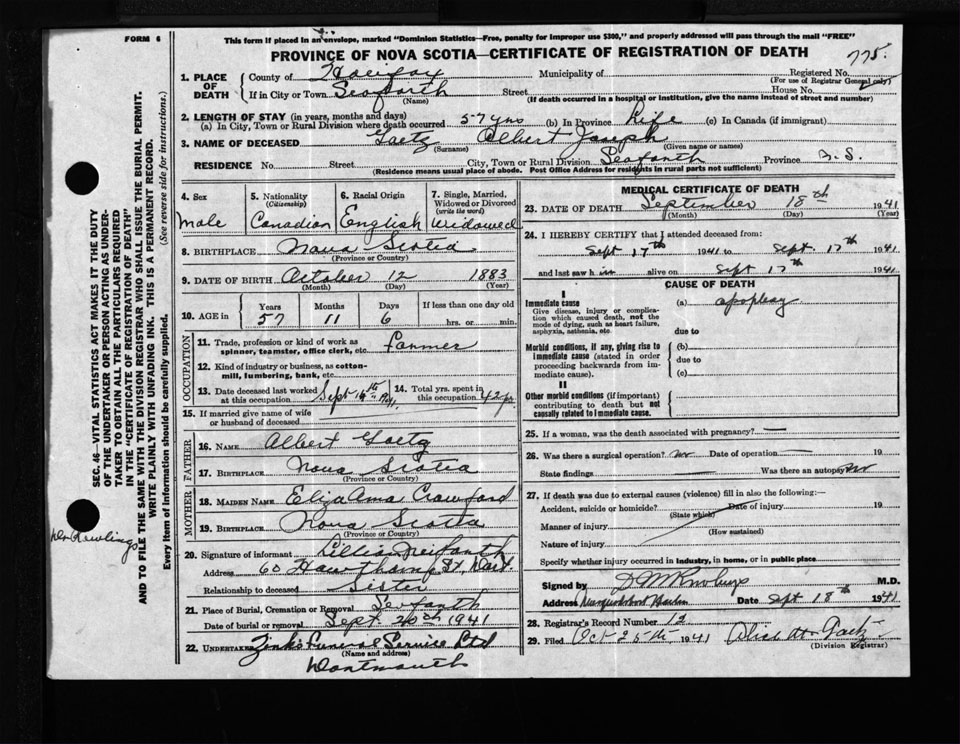 FORM 6
This form if placed in an envelope, marked "Dominion Statistics—Free, penalty for improper use $300," and properly addressed will pass through the mail "FREE"
PROVINCE OF NOVA SCOTIA—CERTIFICATE OF REGISTRATION OF DEATH
775.
1. PLACE OF DEATH
County of Halifax Municipality of Registered No.
(For use of Registrar General only)
If in City or Town Seaforth Street House No.
(Name) (If death occurred in a hospital or institution, give the name instead of street and number)
2. LENGTH OF STAY (in years, months and days)
(a) In City, Town or Rural Division where death occurred 57 yrs (b) In Province Life (c) In Canada (if immigrant)
3. NAME OF DECEASED Gaetz Albert Joseph
(Surname) (Given name or names)
RESIDENCE No. Street City, Town or Rural Division Seaforth Province N.S.
(Residence means usual place of abode. Post Office Address for residents in rural parts not sufficient)
4. Sex Male
5. Nationality (Citizenship) Canadian
6. Racial Origin English
7. Single, Married, Widowed or Divorced (write the word) Widowed
8. BIRTHPLACE Nova Scotia
(Province or Country)
9. DATE OF BIRTH October 12 1883
(Month) (Day) (Year)
10. AGE in Years 57 Months 11 Days 6 If less than one day old hrs. or min.
OCCUPATION
11. Trade, profession or kind of work as spinner, teamster, office clerk, etc. Farmer
12. Kind of industry or business, as cotton-mill, lumbering, bank, etc.
13. Date deceased last worked at this occupation Sept 1941.
14. Total yrs. spent in this occupation 42 yr.
15. If married give name of wife or husband of deceased
FATHER
16. NAME Albert Gaetz
17. BIRTHPLACE Nova Scotia
(Province or Country)
MOTHER
18. MAIDEN NAME Eliza Crawford
19. BIRTHPLACE Nova Scotia
(Province or Country)
20. Signature of informant Lillian
Address 60 Hawthorne St. Dart.
Relationship to deceased Sister
21. Place of Burial, Cremation or Removal Seaforth
Date of burial or removal Sept. 20th 1941
22. UNDERTAKER Zink's Funeral Service Ltd
(Name and address)
Dartmouth
MEDICAL CERTIFICATE OF DEATH
23. DATE OF DEATH September 18th 1941
(Month) (Day) (Year)
24. I HEREBY CERTIFY that I attended deceased from:
Sept 17th 1941 to Sept. 17th 1941
and last saw him alive on Sept 17th 1941
CAUSE OF DEATH
I
Immediate cause (a) apoplexy
Give disease, injury or complication which caused death, not the mode of dying, such as heart failure, asphyxia, asthenia, etc.
due to
Morbid conditions, if any, giving rise to immediate cause (stated in order proceeding backwards from immediate cause).
(b)
due to
(c)
II
Other morbid conditions (if important) contributing to death but not causally related to immediate cause.
25. If a woman, was the death associated with pregnancy? —
26. Was there a surgical operation? no Date of operation —
State findings Was there an autopsy no
27. If death was due to external causes (violence) fill in also the following:—
Accident, suicide or homicide? Date of injury 19
(State which)
Manner of injury
(How sustained)
Nature of injury
Specify whether injury occurred in industry, in home, or in public place
Signed by M.D.
Address Musquodoboit Harbor Date Sept 18th 1941
28. Registrar's Record Number 12
29. Filed Oct 1941 Gaetz
(Division Registrar)
SEC. 46—VITAL STATISTICS ACT MAKES IT THE DUTY
OF THE UNDERTAKER OR PERSON ACTING AS UNDER-
TAKER TO OBTAIN ALL THE PARTICULARS REQUIRED
IN THE "CERTIFICATE OF REGISTRATION OF DEATH"
AND TO FILE THE SAME WITH THE DIVISION REGISTRAR WHO SHALL ISSUE THE BURIAL PERMIT.
WRITE PLAINLY WITH UNFADING INK. THIS IS A PERMANENT RECORD.
Every item of information should be carefully supplied. (See reverse side for instructions.)
Dr Rawlings